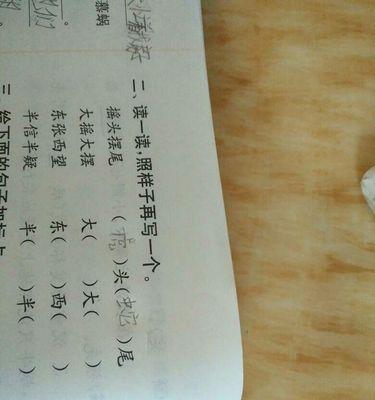 慕 蜗
二、读一读,照样子再写一个。
摇头摆尾 (虎)头(蛇)尾
大摇大摆 大( )大( )
东张西望 东( )西( )
半信半疑 半( )半( )
三 给下面的句子加标点